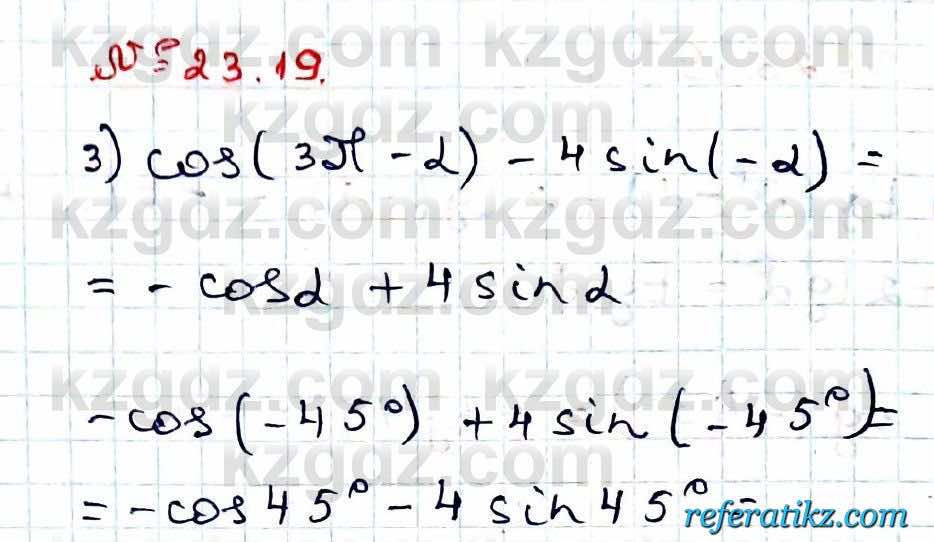 № 23.19.
3) cos(3π - α) - 4 sin(-α) =
= - cosα + 4 sin α
-cos(-45°) + 4 sin(-45°)=
= -cos45° - 4 sin 45° =
kzgdz.com kzgdz.com
kzgdz.com
kzgdz.com kzgdz.com
kzgdz.com
kzgdz.com kzgdz.com
kzgdz.com
referatikz.com